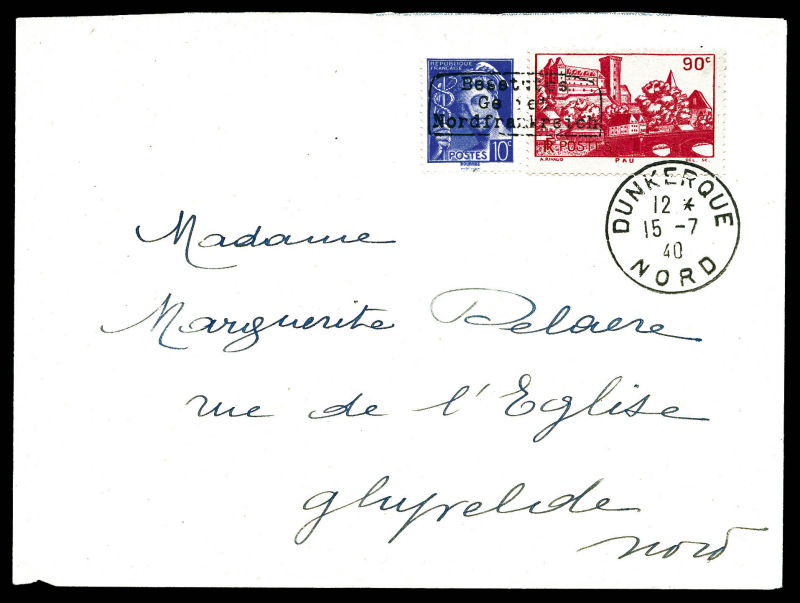 RÉPUBLIQUE
FRANÇAISE
POSTES 10c
90c
POSTES
PAU
Besetztes
Gebiet
Nordfrankreich
DUNKERQUE
12 *
15 -7
40
NORD
Madame
Marguerite Delaere
rue de l'Eglise
ghyvelde
nord